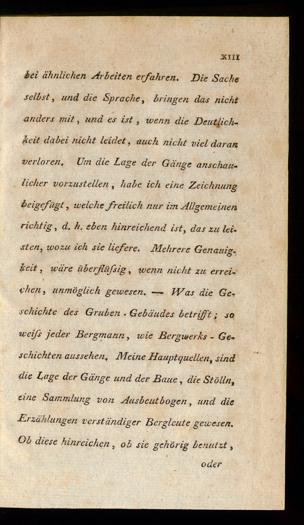 XIII
bei ähnlichen Arbeiten erfahren. Die Sache
selbst, und die Sprache, bringen das nicht
anders mit, und es ist, wenn die Deutlich-
keit dabei nicht leidet, auch nicht viel daran
verloren. Um die Lage der Gänge anschau-
licher vorzustellen, habe ich eine Zeichnung
beigefügt, welche freilich nur im Allgemeinen
richtig, d. h. eben hinreichend ist, das zu lei-
sten, wozu ich sie liefere. Mehrere Genauig-
keit, wäre überflüßig, wenn nicht zu errei-
chen, unmöglich gewesen. — Was die Ge-
schichte des Gruben-Gebäudes betrifft; so
weiß jeder Bergmann, wie Bergwerks-Ge-
schichten aussehen. Meine Hauptquellen, sind
die Lage der Gänge und der Baue, die Stölln,
eine Sammlung von Ausbeutbogen, und die
Erzählungen verständiger Bergleute gewesen.
Ob diese hinreichen, ob sie gehörig benutzt,
oder